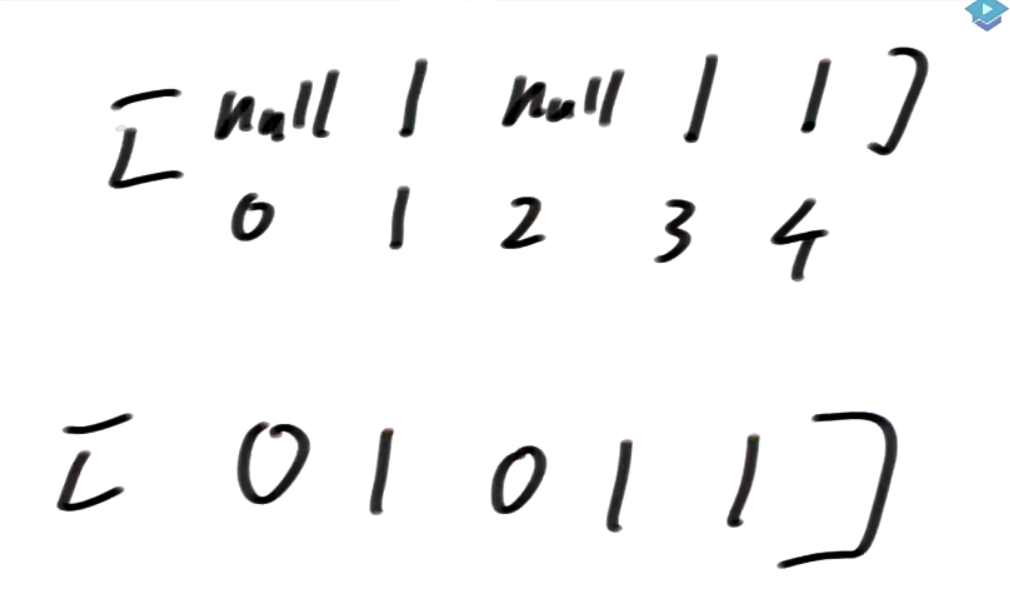 [ null 1 null 1 1 ]
0 1 2 3 4
[ 0 1 0 1 1 ]